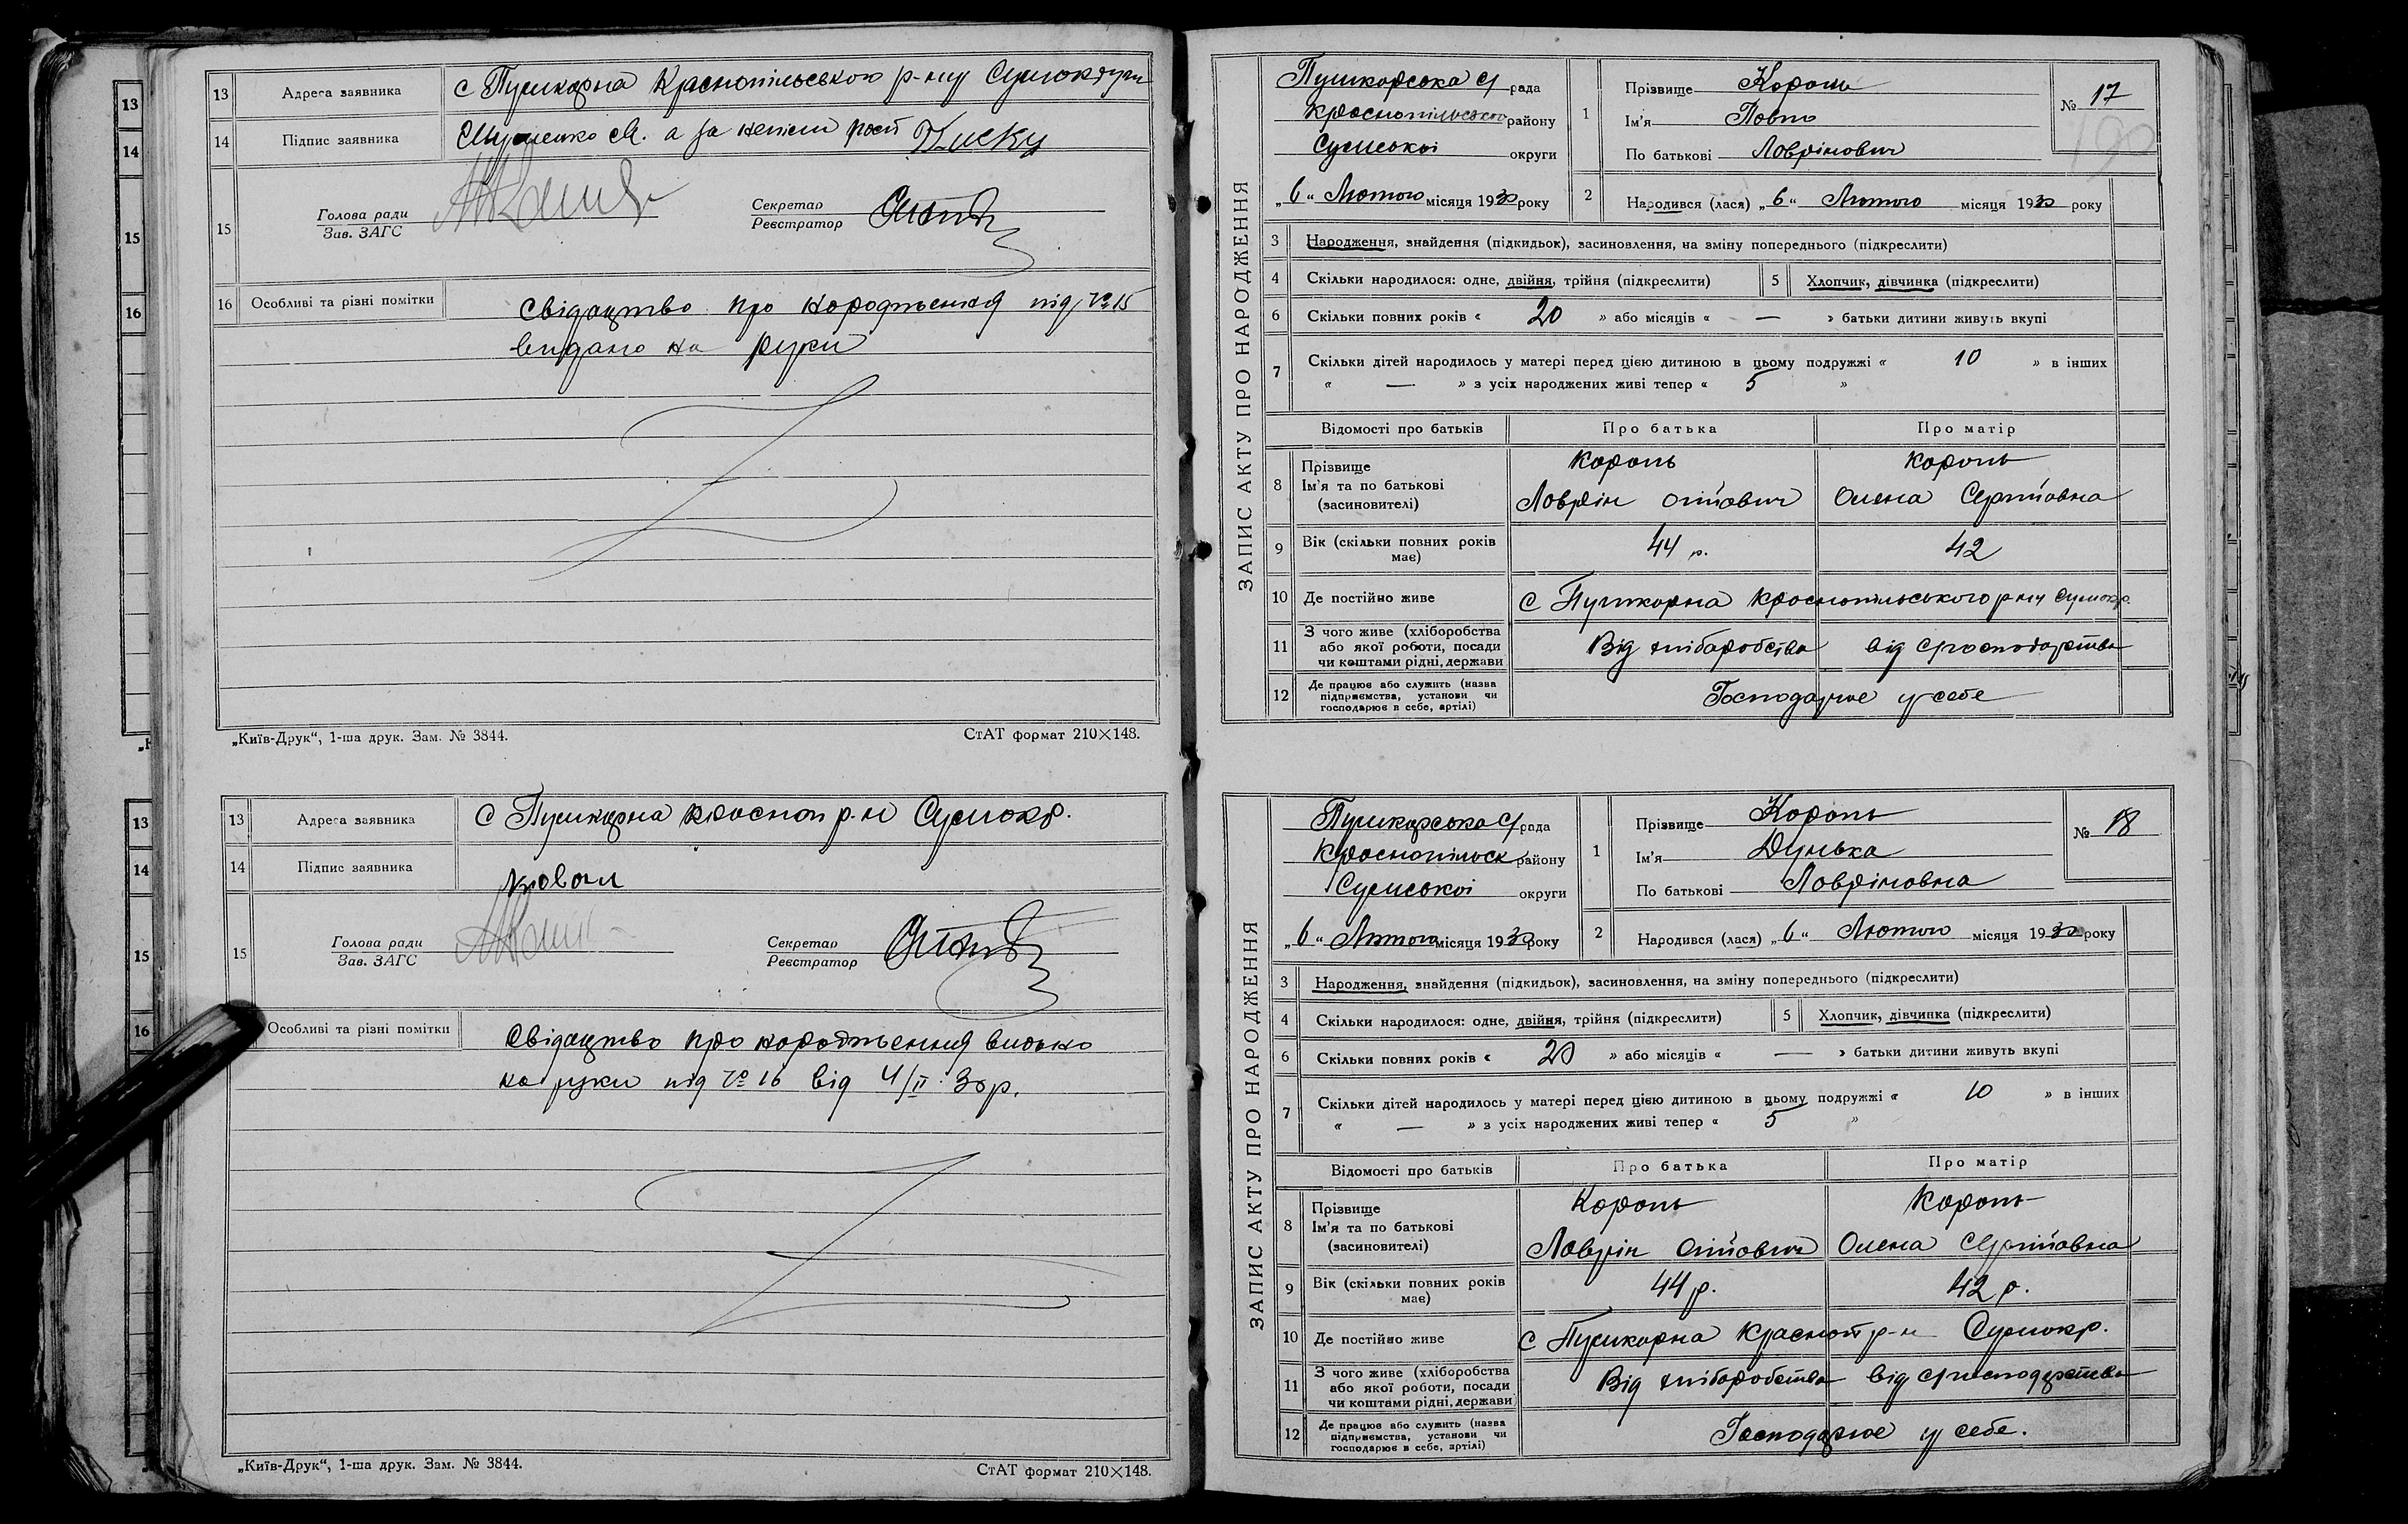 13 Адреса заявника с Пушкарна Краснопільського р-ну Сумокруги
14 Підпис заявника а за неписм
15 Голова ради Секретар
Зав. ЗАГС Реєстратор
16 Особливі та різні помітки Свідоцтво про народження під № 15
видано на руки
„Київ-Друк“, 1-ша друк. Зам. № 3844. СтАТ формат 210×148.
13 Адреса заявника с Пушкарна Красноп р-н Сумокр.
14 Підпис заявника
15 Голова ради Секретар
Зав. ЗАГС Реєстратор
Особливі та різні помітки Свідоцтво про народження видано
на руки під № 16 від 4/II 30р.
„Київ-Друк“, 1-ша друк. Зам. № 3844. СтАТ формат 210×148.
ЗАПИС АКТУ ПРО НАРОДЖЕННЯ
Пушкарська с/рада
Краснопільського району
Сумської округи
„6“ Лютого місяця 1930 року
1 Прізвище Король
Ім'я Повло
По батькові Ловрінович
№ 17
2 Народився (лася) „6“ Лютого місяця 1930 року
3 Народження, знайдення (підкидьок), засиновлення, на зміну попереднього (підкреслити)
4 Скільки народилося: одне, двійня, трійня (підкреслити) 5 Хлопчик, дівчинка (підкреслити)
6 Скільки повних років « 20 » або місяців « — » батьки дитини живуть вкупі
7 Скільки дітей народилось у матері перед цією дитиною в цьому подружжі « 10 » в інших
« — » з усіх народжених живі тепер « 5 »
Відомості про батьків Про батька Про матір
8 Прізвище Король Король
Ім'я та по батькові Ловрін Олена
(засиновителі)
9 Вік (скільки повних років має) 44 р. 42
10 Де постійно живе с Пушкарна Краснопільського р-ну Сумокр.
11 З чого живе (хліборобства або якої роботи, посади чи коштами рідні, держави Від хліборобства від с/господарства
12 Де працює або служить (назва підприємства, установи чи господарює в себе, артілі) Господарює у себе
ЗАПИС АКТУ ПРО НАРОДЖЕННЯ
Пушкарська с/рада
Краснопільськ району
Сумської округи
„6“ Лютого місяця 1930 року
1 Прізвище Король
Ім'я Дунька
По батькові Ловріновна
№ 18
2 Народився (лася) „6“ Лютого місяця 1930 року
3 Народження, знайдення (підкидьок), засиновлення, на зміну попереднього (підкреслити)
4 Скільки народилося: одне, двійня, трійня (підкреслити) 5 Хлопчик, дівчинка (підкреслити)
6 Скільки повних років « 20 » або місяців « — » батьки дитини живуть вкупі
7 Скільки дітей народилось у матері перед цією дитиною в цьому подружжі « 10 » в інших
« — » з усіх народжених живі тепер « 5 »
Відомості про батьків Про батька Про матір
8 Прізвище Король Король
Ім'я та по батькові Ловрін Олена
(засиновителі)
9 Вік (скільки повних років має) 44 р. 42 р.
10 Де постійно живе с Пушкарна Красноп р-н Сумокр.
11 З чого живе (хліборобства або якої роботи, посади чи коштами рідні, держави Від хліборобства від с/господарства
12 Де працює або служить (назва підприємства, установи чи господарює в себе, артілі) Господарює у себе.